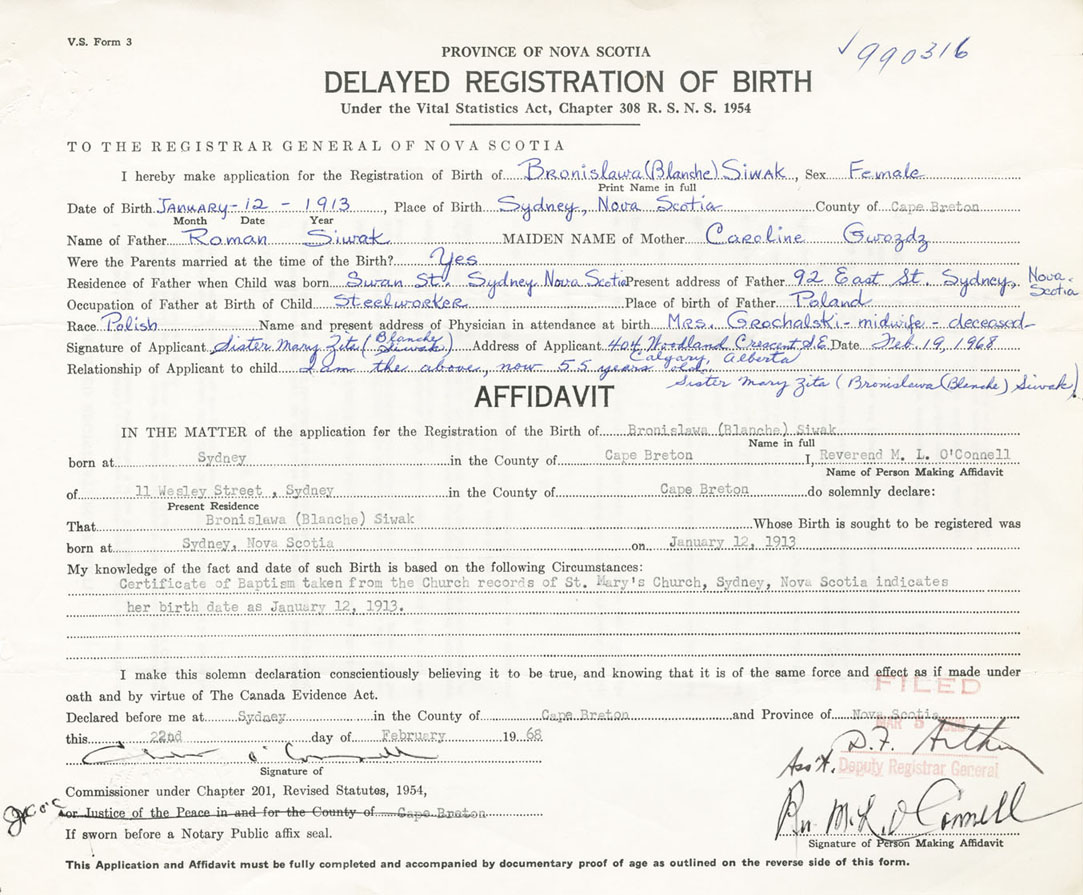 V.S. Form 3
990316
PROVINCE OF NOVA SCOTIA
DELAYED REGISTRATION OF BIRTH
Under the Vital Statistics Act, Chapter 308 R. S. N. S. 1954
TO THE REGISTRAR GENERAL OF NOVA SCOTIA
I hereby make application for the Registration of Birth of Bronislawa (Blanche) Siwak, Sex Female
Print Name in full
Date of Birth January - 12 - 1913, Place of Birth Sydney, Nova Scotia County of Cape Breton
Month Date Year
Name of Father Roman Siwak MAIDEN NAME of Mother Caroline Gwozdz
Were the Parents married at the time of the Birth? Yes
Residence of Father when Child was born Swan St. Sydney Nova Scotia Present address of Father 92 East St. Sydney, Nova Scotia
Occupation of Father at Birth of Child Steelworker Place of birth of Father Poland
Race Polish Name and present address of Physician in attendance at birth Mrs. Grochalski - midwife - deceased
Signature of Applicant Sister Mary Zita (Blanche Siwak) Address of Applicant 404 Woodland Crescent S.E. Calgary, Alberta Date Feb. 19, 1968
Relationship of Applicant to child I am the above, now 55 years old.
Sister Mary Zita (Bronislawa (Blanche) Siwak)
AFFIDAVIT
IN THE MATTER of the application for the Registration of the Birth of Bronislawa (Blanche) Siwak
Name in full
born at Sydney in the County of Cape Breton I, Reverend M. L. O'Connell
Name of Person Making Affidavit
of 11 Wesley Street, Sydney in the County of Cape Breton do solemnly declare:
Present Residence
That Bronislawa (Blanche) Siwak Whose Birth is sought to be registered was
born at Sydney, Nova Scotia on January 12, 1913
My knowledge of the fact and date of such Birth is based on the following Circumstances:
Certificate of Baptism taken from the Church records of St. Mary's Church, Sydney, Nova Scotia indicates
her birth date as January 12, 1913.
I make this solemn declaration conscientiously believing it to be true, and knowing that it is of the same force and effect as if made under
oath and by virtue of The Canada Evidence Act.
FILED
Declared before me at Sydney in the County of Cape Breton and Province of Nova Scotia
MAR 5
this 22nd day of February 1968
O'Connell
D.F. Arthur
Ass't. Deputy Registrar General
Signature of
Commissioner under Chapter 201, Revised Statutes, 1954,
or Justice of the Peace in and for the County of Cape Breton
Rev. M. L. O'Connell
If sworn before a Notary Public affix seal.
Signature of Person Making Affidavit
This Application and Affidavit must be fully completed and accompanied by documentary proof of age as outlined on the reverse side of this form.